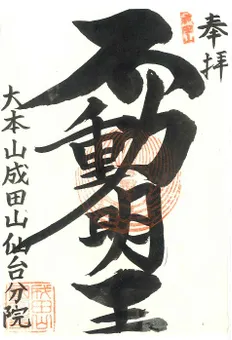 奉拝
成田山
不動明王
大本山成田山仙台分院
成田山